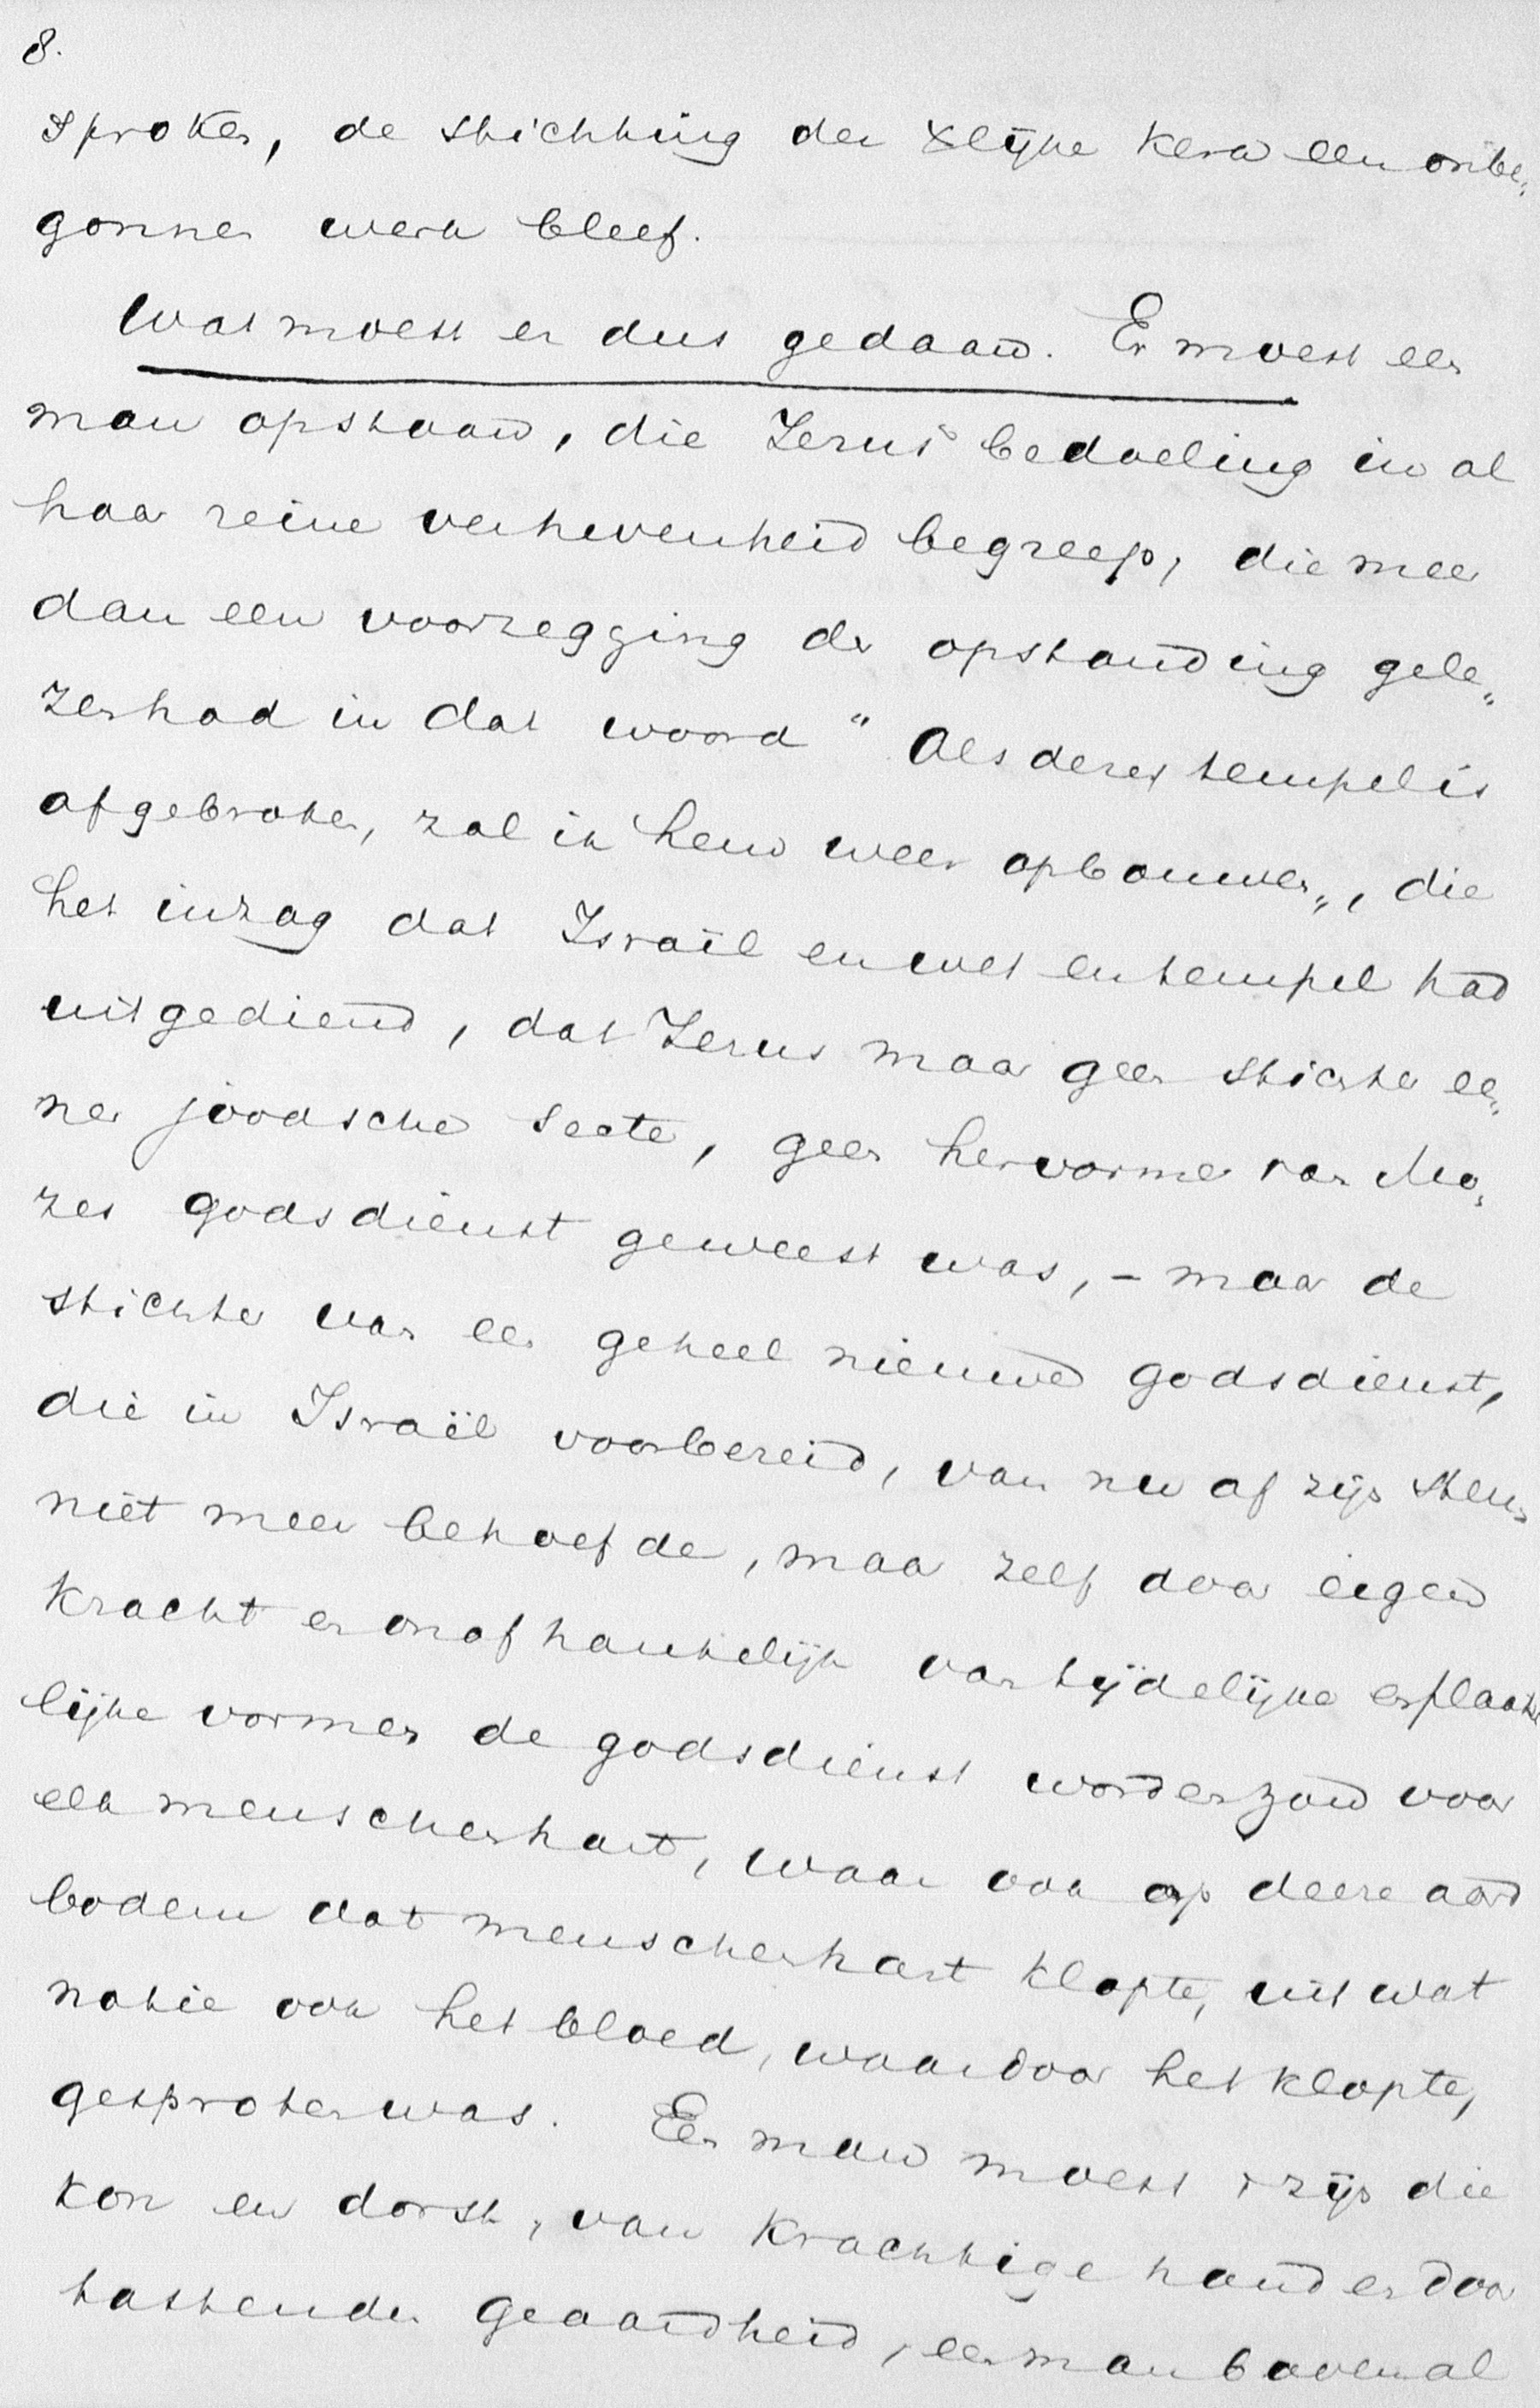 8.
sproken, de stichting der Xlijke kerk een onbe„
gonnen werk bleef.
Wat moest er dus gedaan. Er moest een
man opstaan, die Jezus' bedoeling in al
haar reine verhevenheid begreep, die meer
dan een voorzegging der opstanding gele„
zen had in dat woord " Als dezen tempel is
afgebroken, zal ik hem weer opbouwen„, die
het inzag dat Israël en wet en tempel had
uitgediend, dat Jezus maar geen stichter ee„
ner joodsche secte, geen hervormer van Mo„
zes godsdienst geweest was, – maar de
stichter van een geheel nieuwe godsdienst,
die in Israël voorbereid, van nu af zijn steun
niet meer behoefde, maar zelf door eigen
kracht en onafhankelijk van tijdelijke en plaatse
lijke vormen de godsdienst worden zou voor
elk menschenhart, waar ook op deeze aard
bodem dat menschenhart klopte, uit wat
natie ook het bloed, waardoor het klopte,
gesproten was. Een man moest 't zijn die
kon en dorst, van krachtige hand en door
tastender geaardheid, een man bovenal